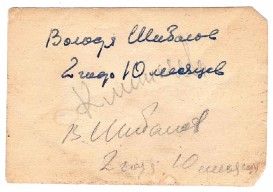 Володя Шибалов
2 года 10 месяцев
В. Шибалов
2 года 10 месяцев